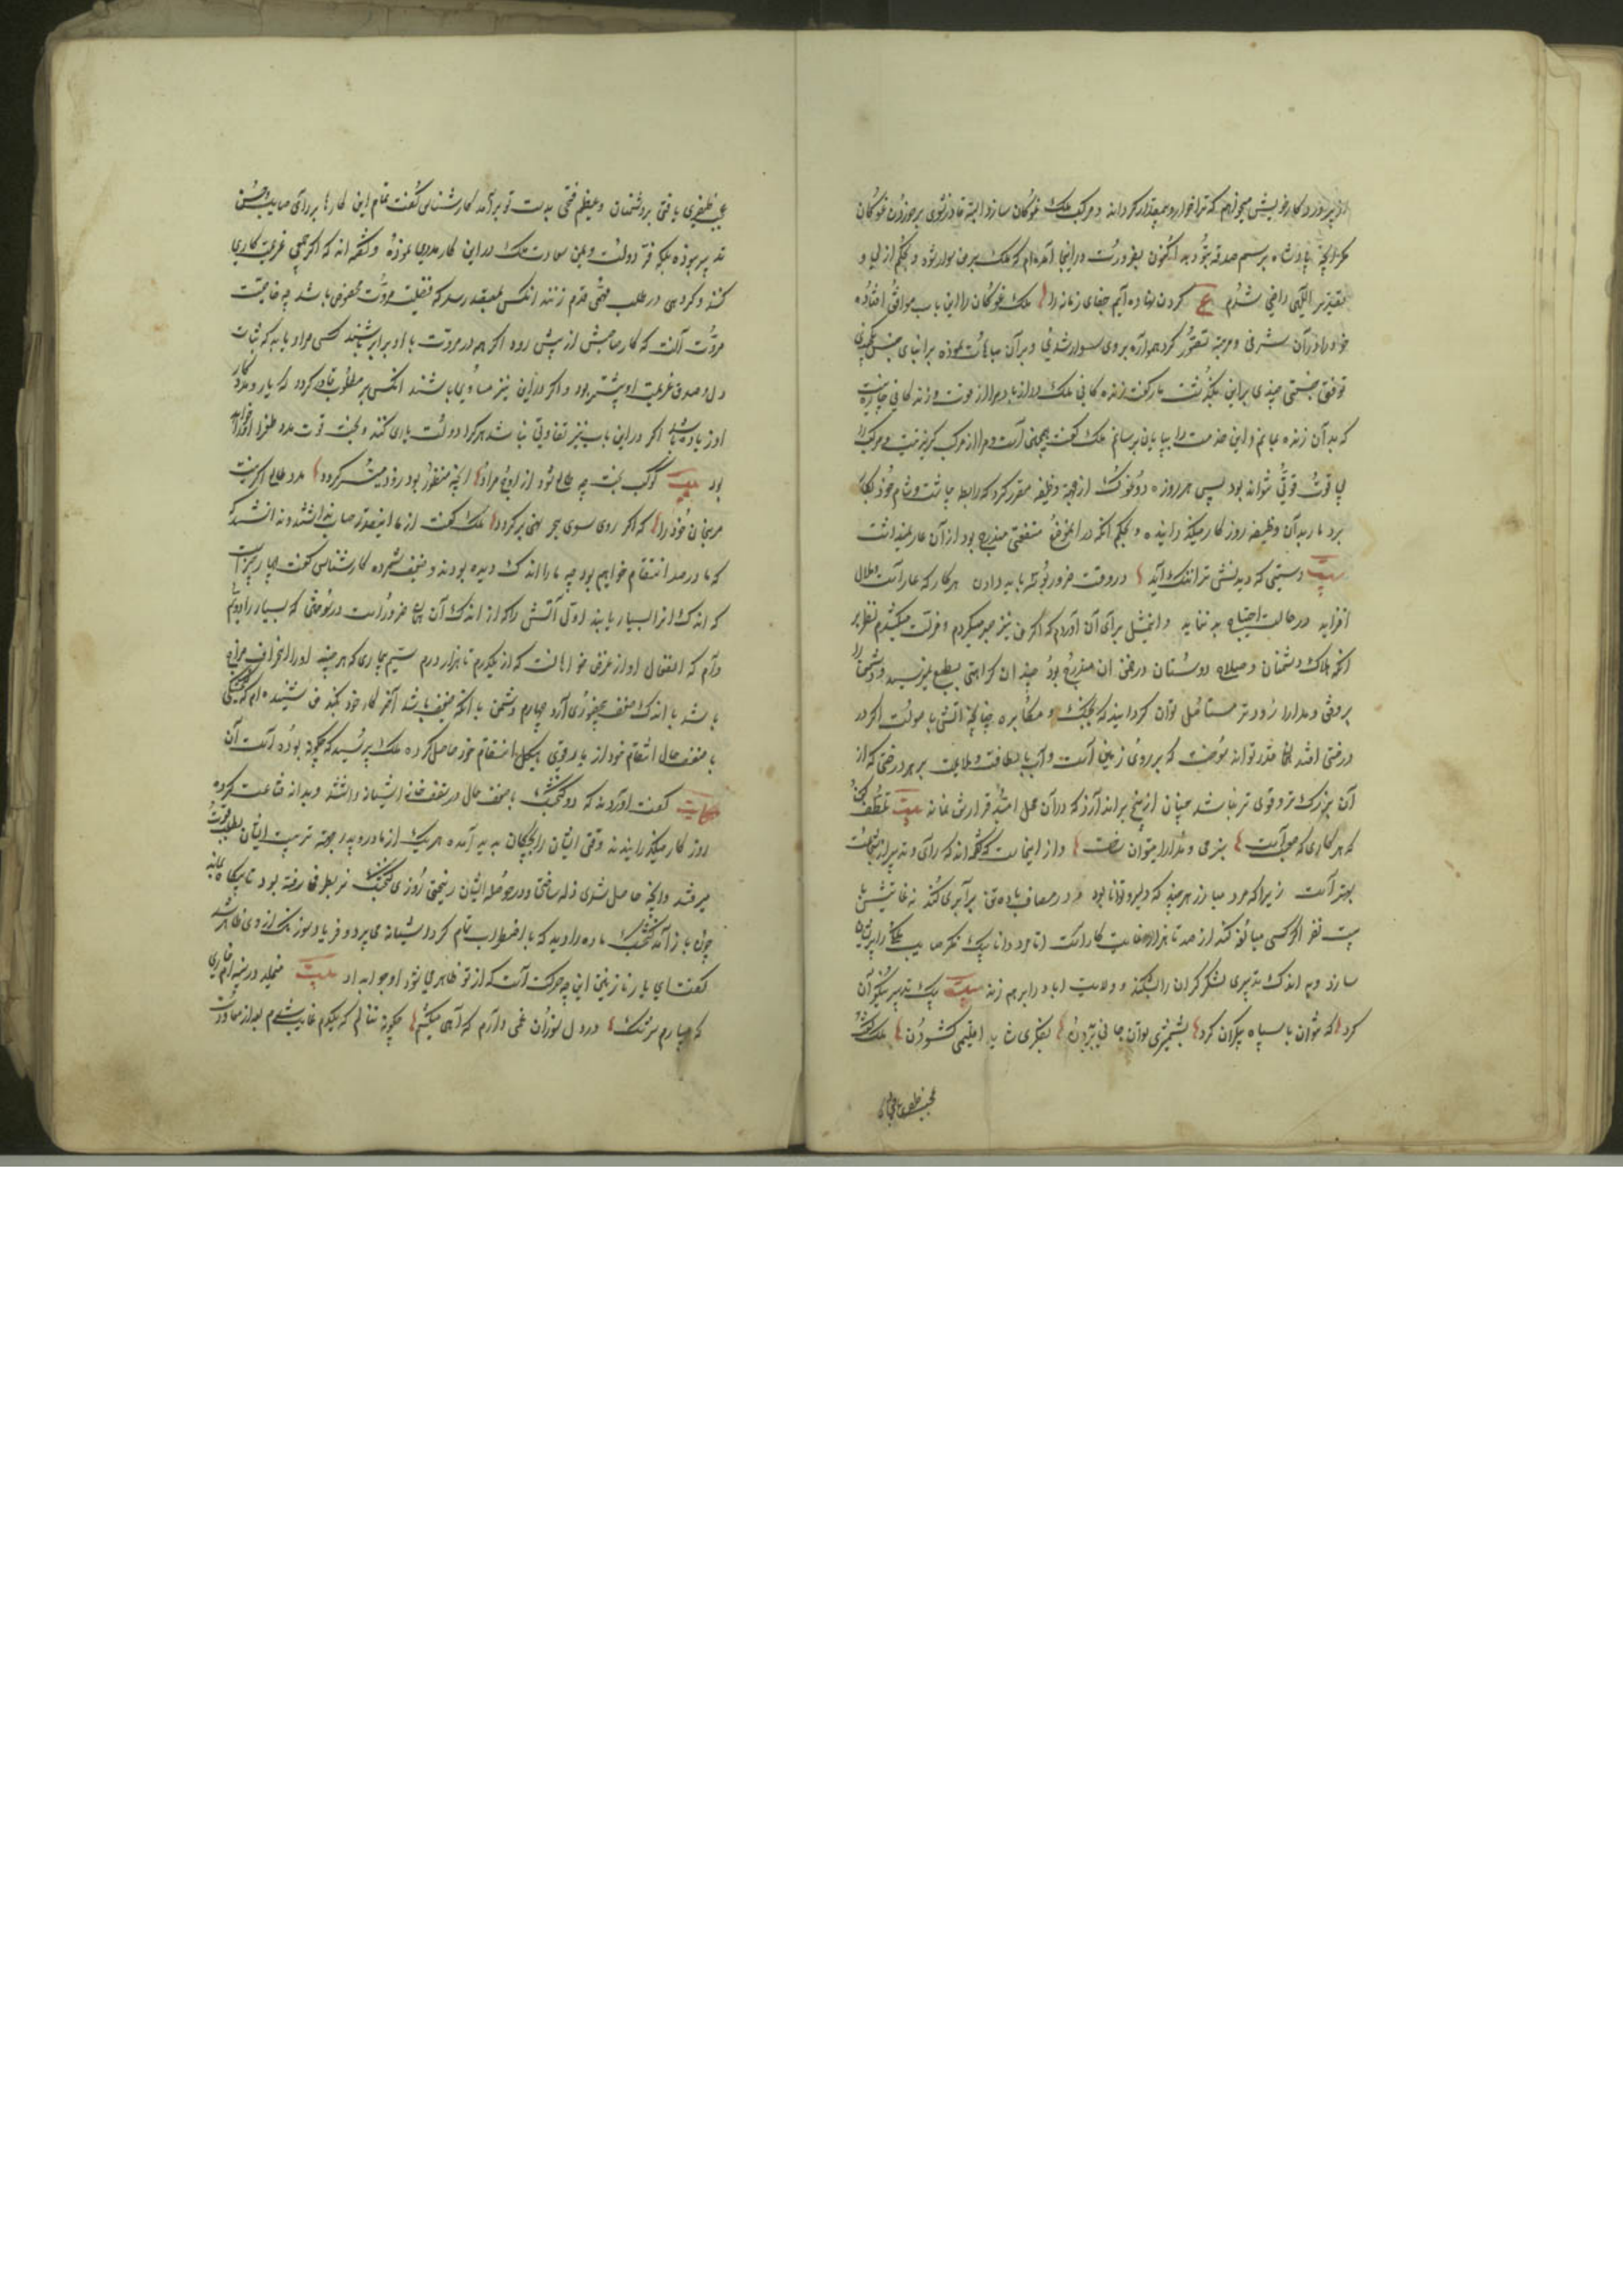 از پروردگار خویش میخواهم که ترا خوار و بیمقدار گرداند و مرکب ملک غوکان سازد البته قادر نشوی بر خوردن غوکان
مگر آنچه پادشاه برسم صدقه بتو دهد اکنون بضرورت در اینجا آمده‌ام که ملک بر من سوار شود و بحکم ازلی و
تقدیر الهی راضی شدم ع کردن نهاده‌ایم جفای زمانه را ملک غوکان را این باب موافق افتاده
خود را در آن شرفی و مرتبه تصور کرد همواره بر وی سوار شدی و بر آن مباهات نموده بر ابنای جنس
تفوق جستی چندی برین بگذشت مار گفت زندگانی ملک دراز باد مرا از قوت و زندگانی چاره نیست
که بدان زنده مانم و این خدمت را بپایان برسانم ملک گفت همچنین است مرا از مرکب گریز نیست و مرکب را
بی قوت قوتی نتواند بود پس هر روزه دو غوک از جهة وظیفه مقرر کرد که رابطه چاشت و شام خود بکار
برد مار بدان وظیفه روزگار میگذرانید و بحکم آنکه در آن تواضع منفعتی مندرج بود از آن عار نمیداشت
بیت دستی که دیدنش ترا ننگ آید در وقت ضرور بوسه باید دادن هر کار که عار است و ملال
افزاید در حالت احتیاج بد ننماید و این مثل برای آن آوردم که اگر من نیز صبر میکردم و مذلت میکشیدم نظر بر
آنکه هلاک دشمنان و صلاح دوستان در ضمن آن مندرج بود چندان کراهتی بطبع نمیرسید و دشمن را
برفق و مدارا زودتر مستأصل توان گردانید که بجنگ و مکابره چنانچه آتش با صولت اگر در
درختی افتد آن قدر تواند سوخت که بر روی زمین است و آب با لطافت و ملایمت بر هر درختی که از
آن بزرگ‌تر و قوی‌تر نباشد چنان از بیخ براندازد که در آن محل امید قرارش نماند بیت تلطف کن
که هر کاری که صعب است بنرمی و مدارا میتوان ساخت و از اینجاست که گفته‌اند که رأی و تدبیر از شجاعت
بهتر است زیرا که مرد مبارز هر چند که دلیر و توانا بود و در مصاف با ده تن برابری کند نه غایتش
بیست نفر اگر کسی مبالغه کند از صد تا هزار نهایت کار است اما مرد دانا بیک فکر صایب ملکی را پریشان
سازد و به اندک تدبیری لشکر گران را بشکند و ولایت آباد را بر هم زند بیت بیک تدبیر نیکو آن
کرد که نتوان با سپاه بیکران کرد بشمشیری توان جانی ببردن بفکری شاید اقلیمی گشودن ملک گفت
عجب ظفری یافتی
عجب ظفری یافتی بر دشمنان و عظیم فتحی بدست تو برآمد کارشناس گفت تمام این کارها برای صایب و حسن
تدبیر نبوده بلکه فر دولت و یمن سعادت ملک در این کار مددی نموده و گفته‌اند که اگر جمعی عزیمت کاری
کنند و گروهی در طلب مهمی قدم زنند آنکس بمقصد رسد که بفضیلت مروت مخصوص باشد چه خاصیت
مروت آنست که کار صاحبش از پیش رود اگر همه در مروت با او برابر باشند کسی مراد یابد که ثبات
دل و صدق عزیمت او بیشتر بود و اگر در این نیز مساوی باشند آنکس بر مطلوب قادر گردد که یار و مددکار
او زیاده باشد و اگر در این باب نیز تفاوتی نباشد هر کرا دولت یاری کند و بخت قوت مدد ظفر او را
بود بیت کوکب بخت چه طالع شود از اوج مراد آنچه منظور بود زود میسر گردد مدد طالع اگر نیست
مرنجان خود را که اگر روی سوی بحر نهی بر گردد ملک گفت از ما اینقدر حساب نداشتند و ندانستند
که ما در صدد انتقام خواهیم بود چه ما را اندک دیده بودند و ضعیف شمرده کارشناس گفت چهار چیز است
که اندک آنرا بسیار باید اول آتش را که از اندک آن همان ضرر است در سوختن که بسیار را دوم
وام که انفعال او از غرض خواهانست که از یکدرم تا هزار درم سیم بیماری که هر چند او را انحراف مزاج
باشد با اندک ضعف و بیحضوری آرد چهارم دشمن با آنکه ضعیف باشد آخر کار خود بکند من شنیده‌ام که گنجشکی
با ضعف حال انتقام خود از مار قوی هیکل حاصل کرده ملک پرسید که چگونه بوده است آن
حکایت گفت آورده‌اند که دو گنجشک با ضعف حال در سقف خانه آشیانه داشتند و بدانه قناعت کرده
روزگار میگذرانیدند وقتی ایشان را بچگان پدید آمده هر یک از مادر و پدر بجهة تربیت ایشان بطلب قوت
میرفتند و آنچه حاصل شدی زله ساختی و در حوصله ایشان ریختی روزی گنجشک نر بطرفی رفته بود
چون باز آمد گنجشک ماده را دید که با اضطراب تمام گرد آشیانه می‌پرد و فریاد و سوزناک از وی ظاهر شد
گفت ای یار نازنین این چه حرکت است که از تو ظاهر میشود او جواب داد بیت
که میبارم سرشک درد دل سوزان غمی دارم که آهی میکشم چگونه ننالم که یکدم غایب شدم بعد از معاودت